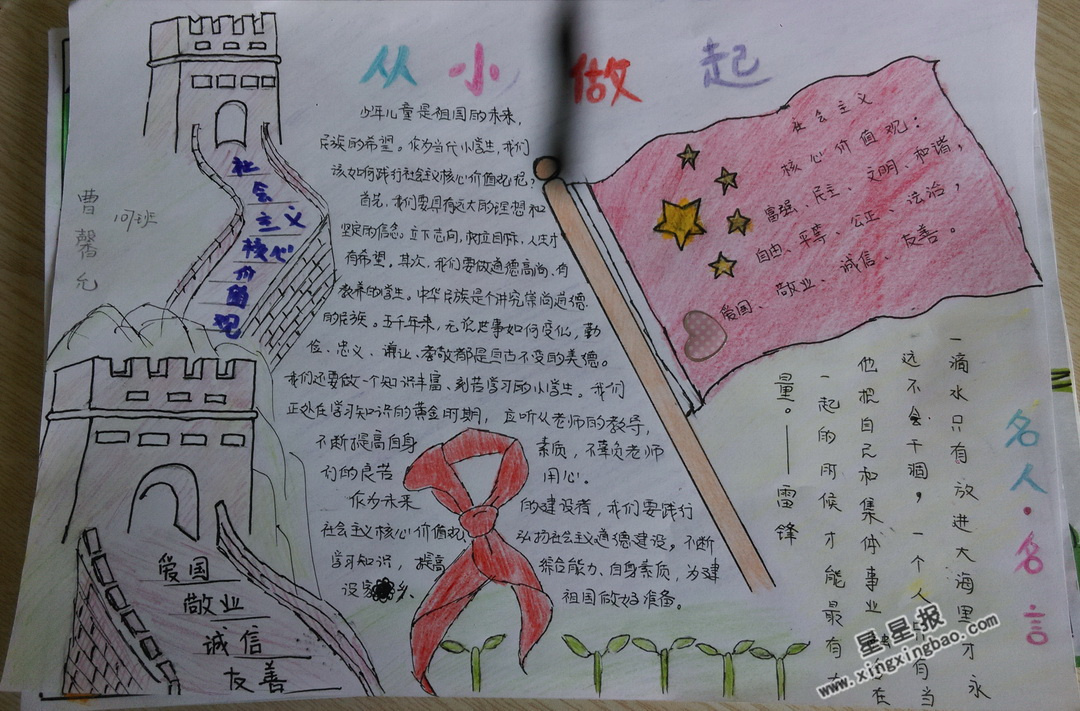 从小做起
曹馨允
107班
社会主义核心价值观
少年儿童是祖国的未来,
民族的希望。作为当代小学生,我们
该如何践行社会主义核心价值观呢?
首先,我们要具有远大的理想和
坚定的信念。立下志向,树立目标,人生才
有希望。其次,我们要做道德高尚、有
教养的学生。中华民族是个讲究崇尚道德
的民族。五千年来,无论世事如何变化,勤
俭、忠义、谦让、孝敬都是亘古不变的美德。
我们还要做一个知识丰富、刻苦学习的小学生。我们
正处在学习知识的黄金时期,应听从老师的教导,
不断提高自身素质,不辜负老师
们的良苦用心。
作为未来的建设者,我们要践行
社会主义核心价值观,弘扬社会主义道德建设。不断
学习知识,提高综合能力、自身素质,为建
设家乡、祖国做好准备。
社会主义
核心价值观:
富强、民主、文明、和谐,
自由、平等、公正、法治,
爱国、敬业、诚信、友善。
爱国
敬业
诚信
友善
名人·名言
一滴水只有放进大海里才永
远不会干涸,一个人有当
他把自己和集体事业在
一起的时候才能最有
量。——雷锋
星星报
www.xingxingbao.com